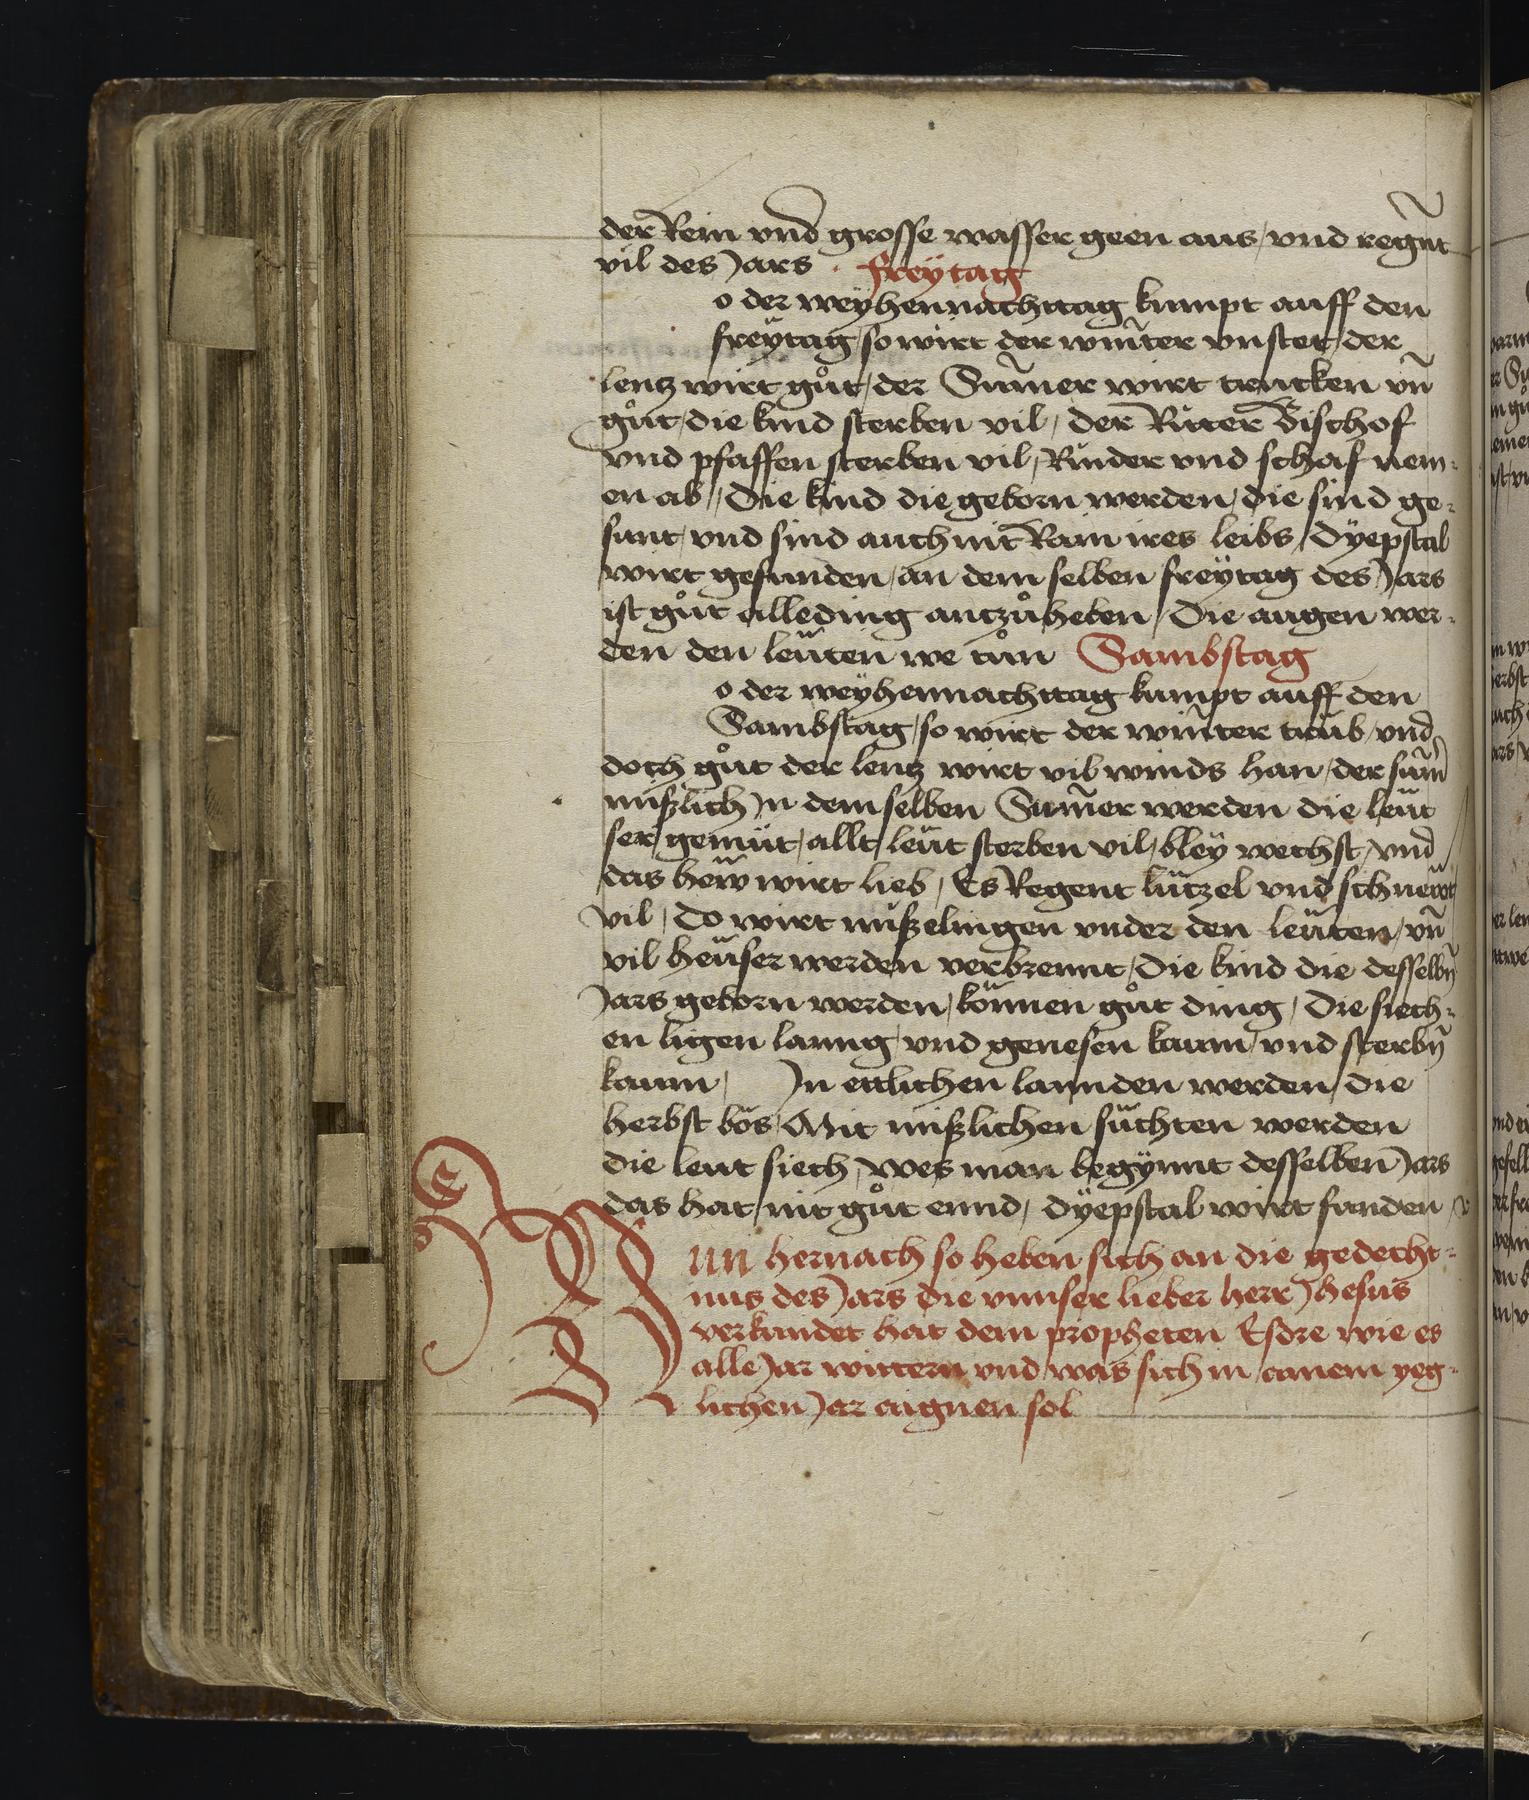 der Rein vnd grosse wasser geen aus / vnd regñt
vil des Jars . freÿtag
o der weÿhennachttag kumpt auff den
freÿtag / so wirt der wiñter vnstet / der
lentz wirt gůt / der Sum̃er wirt trucken vñ
gůt / die kind sterben vil / der Ritter Bischof
vnd pfaffen sterben vil / Rinder vnd schaf nem-
en ab / Die kind die geborn werden / die sind ge-
sunt / vnd sind auch nit Rain ires leibs / Dÿepstal
wirt gefunden / an dem selben freÿtag des Jars
ist gůt alle ding antzůheben / Die augen wer-
den den leüten we tůn Sambstag
o der weÿhennachttag kumpt auff den
Sambstag / so wirt der wiñter trüb / vnd
doch gůt der lentz wirt vil winds han / der sum̃
mißlich Jn dem selben Sum̃er werden die leüt
ser gemüt / allt leüt sterben vil / bleÿ wechst / vnd
das heẅ wirt lieb / Es Regent lützel vnd schneẅt
vil / Do wirt mißelingen vnder den leüten / vñ
vil heüser werden verbrennt / Die kind die desselbñ
Jars geborn werden / können gůt ding / Die siech-
en ligen lanng / vnd genesen kaum / vnd sterbñ
kaum / Jn ettlichen lannden werden / die
herbst bös / Mit mißlichen süchten werden
die leut siech / wes man begÿnnt desselben Jars
das hat nit gůt ennd / dÿepstal wirt funden
NUn hernach so heben sich an die gedecht-
nus des Jars die vnnser lieber herr Jhesus
verkundet hat dem propheten Esdre wie es
alle Jar wittern vnd was sich in ainem yeg-
lichen Jar aignen sol